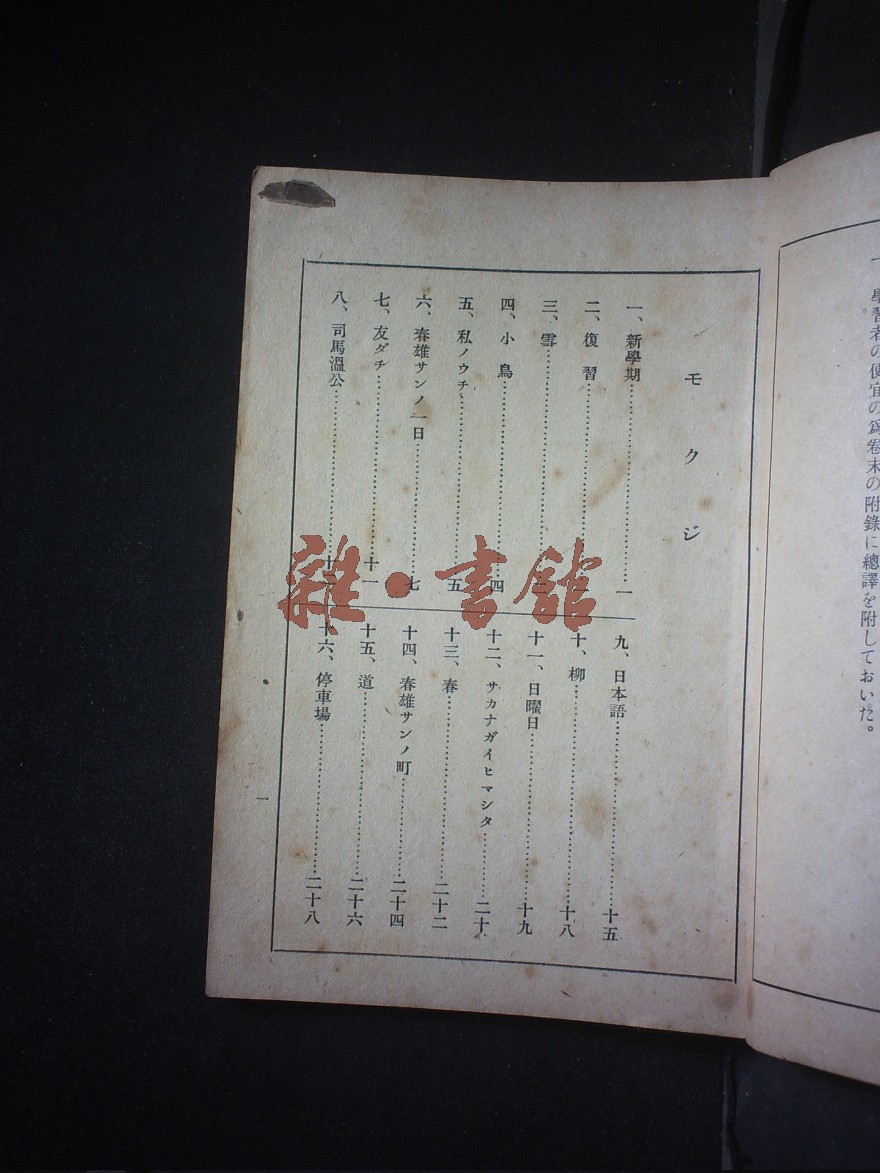 一、學習者の便宜の爲卷末の附錄に總譯を附しておいた。
モクジ
一、新學期……一
二、復習
三、雪
四、小鳥……四
五、私ノウチ……五
六、春雄サンノ一日……七
七、友ダチ……十一
八、司馬溫公
九、日本語……十五
十、柳……十八
十一、日曜日……十九
十二、サカナガイヒマシタ……二十
十三、春……二十二
十四、春雄サンノ町……二十四
十五、道……二十六
十六、停車場……二十八
一
雜·書館